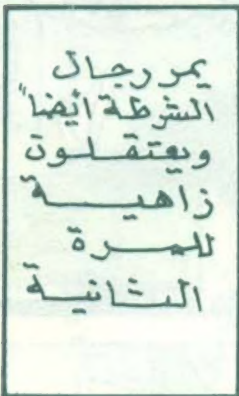 يمر رجال
الشرطة أيضاً
ويعتقلون
زاهية
للمرة
الثانية